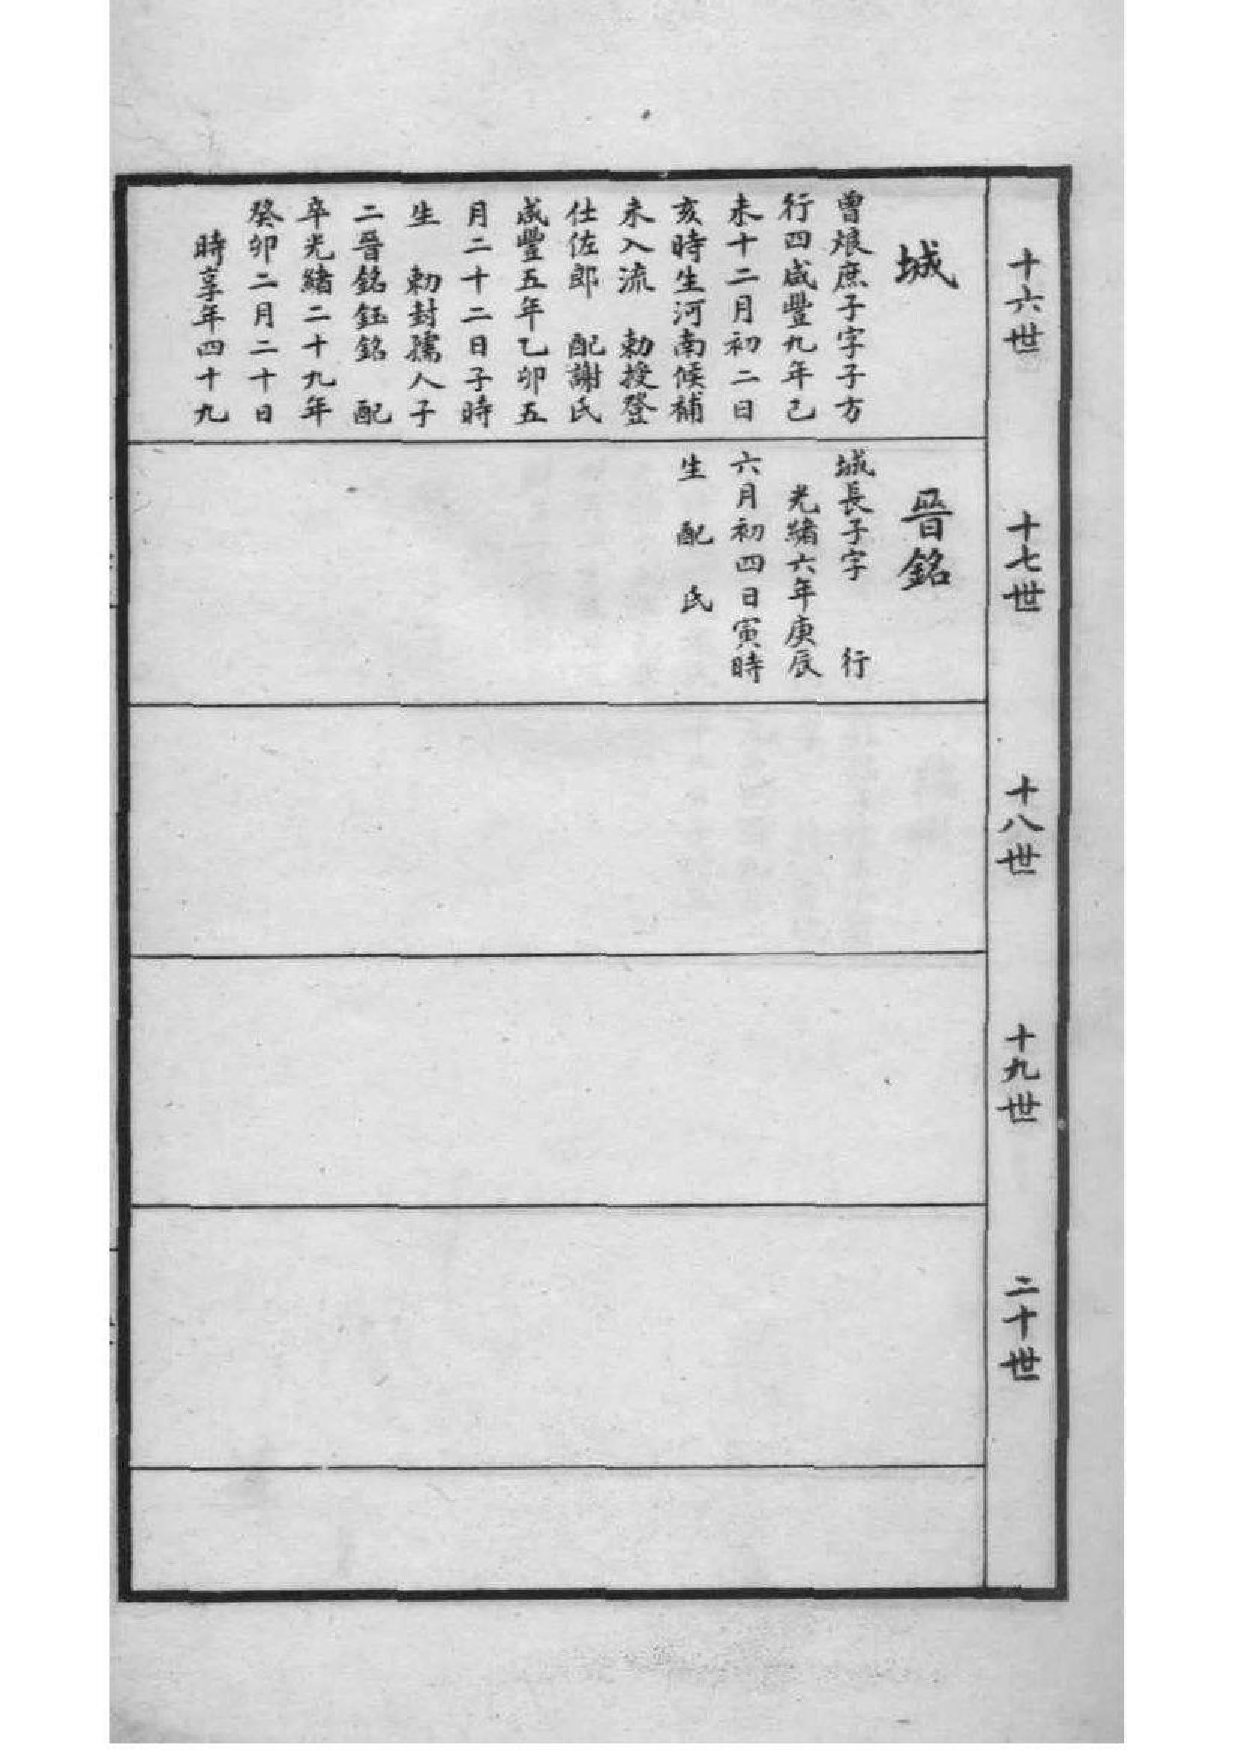 十六世
城
曾烺庶子字子方
行四咸豐九年己
未十二月初二日
亥時生河南候補
未入流　勅授登
仕佐郎　配謝氏
咸豐五年乙卯五
月二十二日子時
生　勅封孺人子
二晉銘鈺銘　配
卒光緒二十九年
癸卯二月二十日
時享年四十九
十七世
晉銘
城長子字　行
光緒六年庚辰
六月初四日寅時
生　配　氏
十八世
十九世
二十世